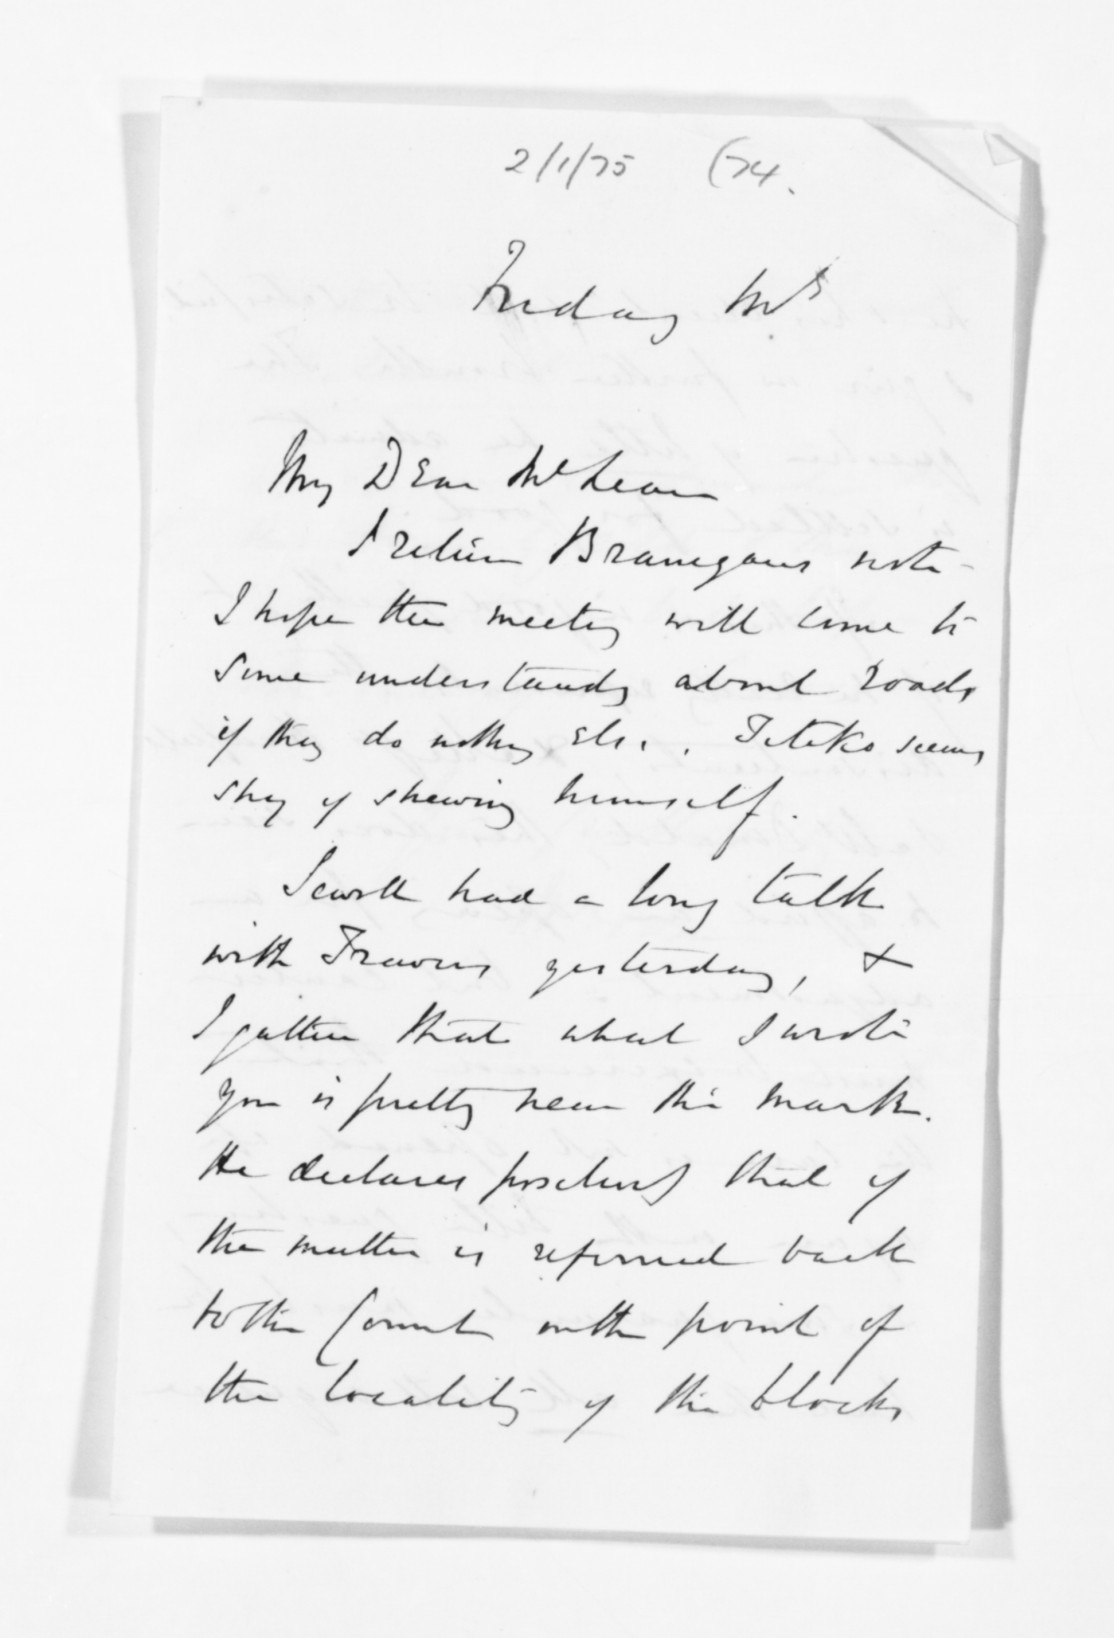 2/1/75 (74.
Friday Mg
My Dear McLean
I return Branigans note -
I hope the meeting will come to
some understandg about roads
if they do nothing else. Tetoko seems
shy of shewing himself.
Sewell had a long talk
with Travers yesterday, &
I gather that what I wrote
you is pretty near the mark.
He declares positively that if
the matter is referred back
to the Court on the point of
the locality of the blocks